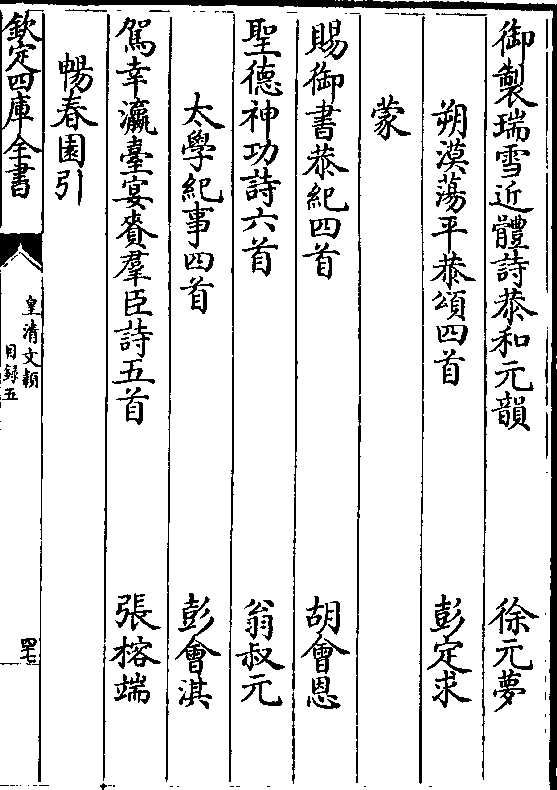 御製瑞雪近體詩恭和元韻 徐元夢
朔漠蕩平恭頌四首 彭定求
蒙
賜御書恭紀四首 胡會恩
聖德神功詩六首 翁叔元
太學紀事四首 彭會淇
駕幸瀛臺宴賚羣臣詩五首 張榕端
暢春園引
欽定四庫全書
皇清文穎
目録五
四七